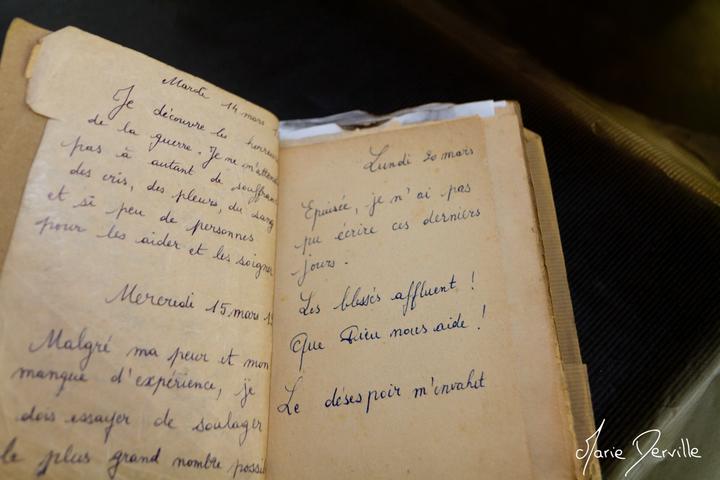 Mardi 14 mars
Je découvre les
de la guerre. Je ne
pas à autant de
des cris, des pleurs, du sang
et si peu de personnes
pour les aider et les soigner
Mercredi 15 mars
Malgré ma peur et mon
manque d'expérience, je
dois essayer de soulager
le plus grand nombre
Lundi 20 mars
Epuisée, je n'ai pas
pu écrire ces derniers
jours.
Les blessés affluent !
Que Dieu nous aide !
Le désespoir m'envahit
Marie Derville